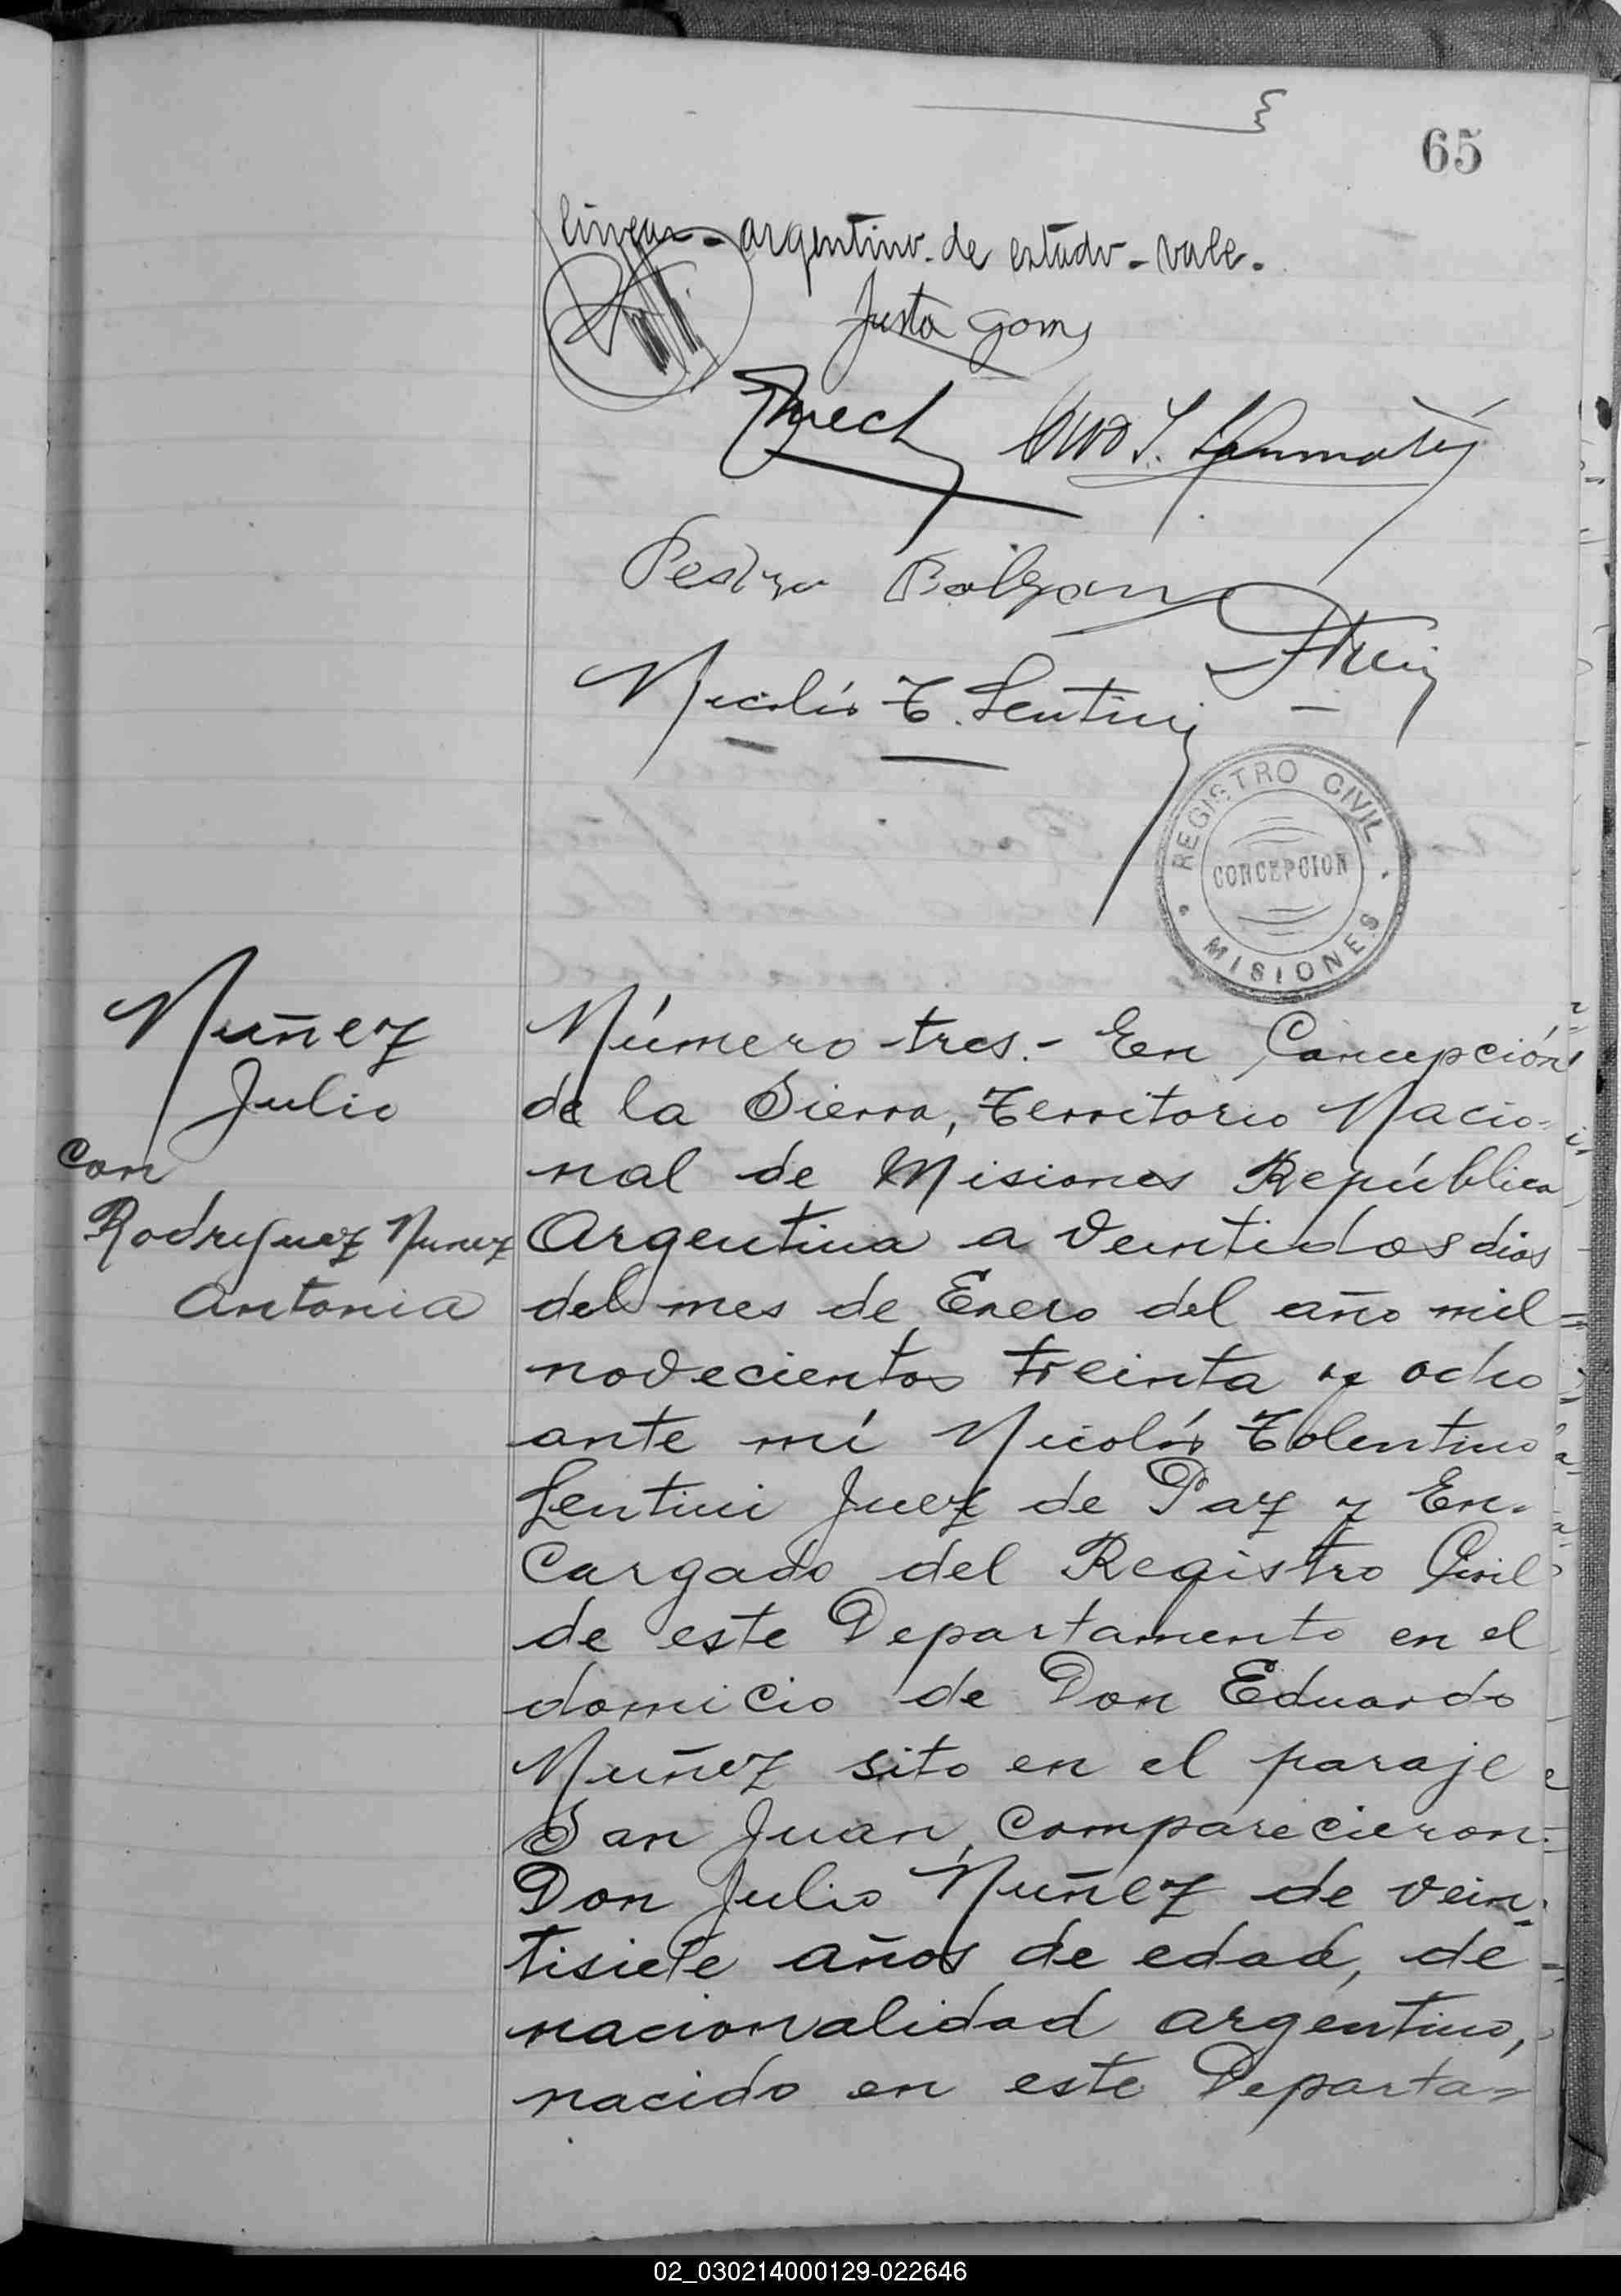 65
lineas - argentino - de estado - vale.
Justa Gom
Pedro
Nicolás T. Lentini
REGISTRO CIVIL
CONCEPCION
MISIONES
Nuñez
Julio
con
Rodriguez Nunez
Antonia
Número tres.- En Concepción
de la Sierra, Territorio Nacio-
nal de Misiones República
Argentina a veintidos dias
del mes de Enero del año mil
novecientos treinta y ocho
ante mí Nicolás Tolentino
Lentini Juez de Paz y En-
cargado del Registro Civil
de este Departamento en el
domicio de Don Eduardo
Nuñez sito en el paraje
San Juan, comparecieron:
Don Julio Nuñez de vein-
tisiete años de edad, de
nacionalidad argentino,
nacido en este Departa-
02_030214000129-022646